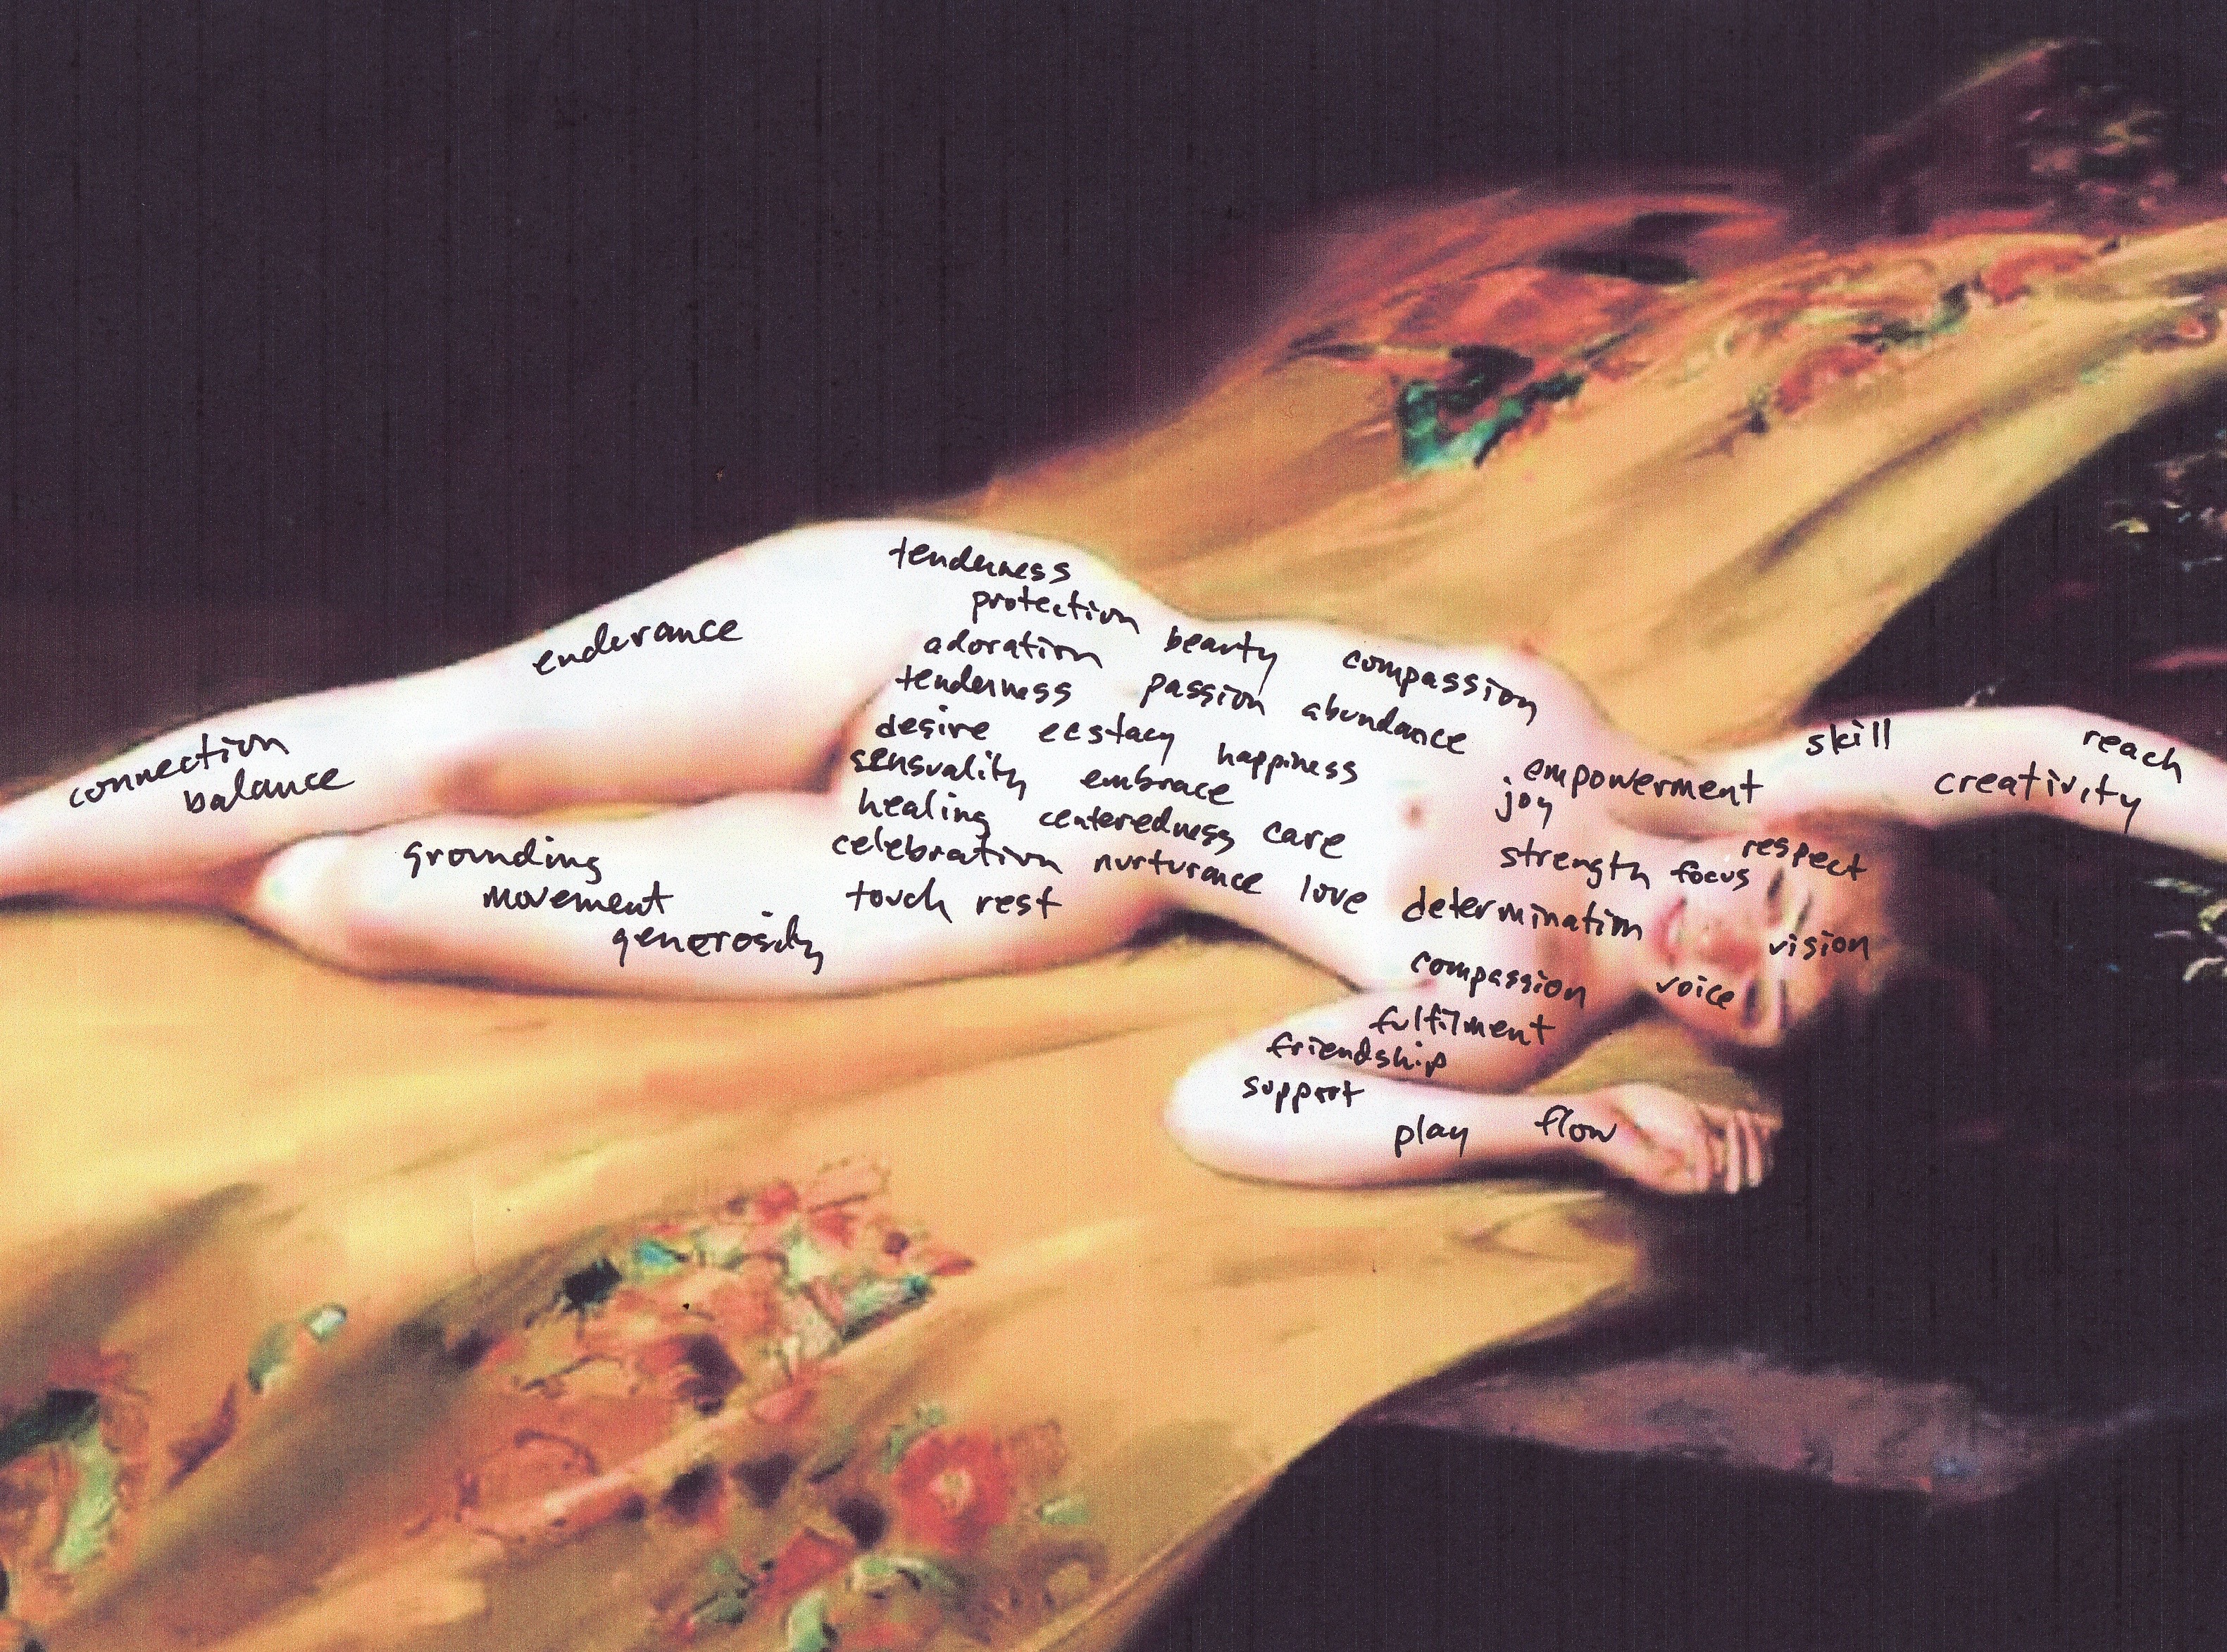 tenderness
protection
adoration beauty compassion
tenderness passion abundance
desire ecstacy happiness
sensuality embrace
healing centeredness care
celebration nurturance love determination
touch rest
endurance
connection
balance
grounding
movement
generosity
empowerment
joy
strength focus respect
skill reach
creativity
vision
voice
compassion
fulfilment
friendship
support
play flow